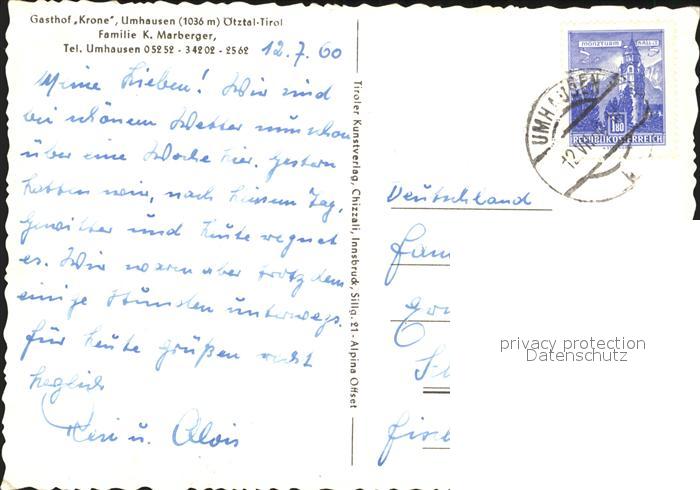 Gasthof „Krone", Umhausen (1036 m) Ötztal-Tirol
Familie K. Marberger,
Tel. Umhausen 05252 - 34202 - 2562
12.7.60
Meine Lieben! Wir sind
bei schönem Wetter nun schon
über eine Woche hier. Gestern
hatten wir, nach heissem Tag,
Gewitter und heute regnet
es. Wir waren aber trotzdem
einige Stunden unterwegs.
Für heute grüßen recht
herzlich
Resi u. Alois
Tiroler Kunstverlag, Chizzali, Innsbruck, Sillg. 21 - Alpina Offset
MÜNZTURM HALL i.T.
S 5
1.80
REPUBLIK ÖSTERREICH
UMHAUSEN
12.VII
Deutschland
Fam
privacy protection
Datenschutz